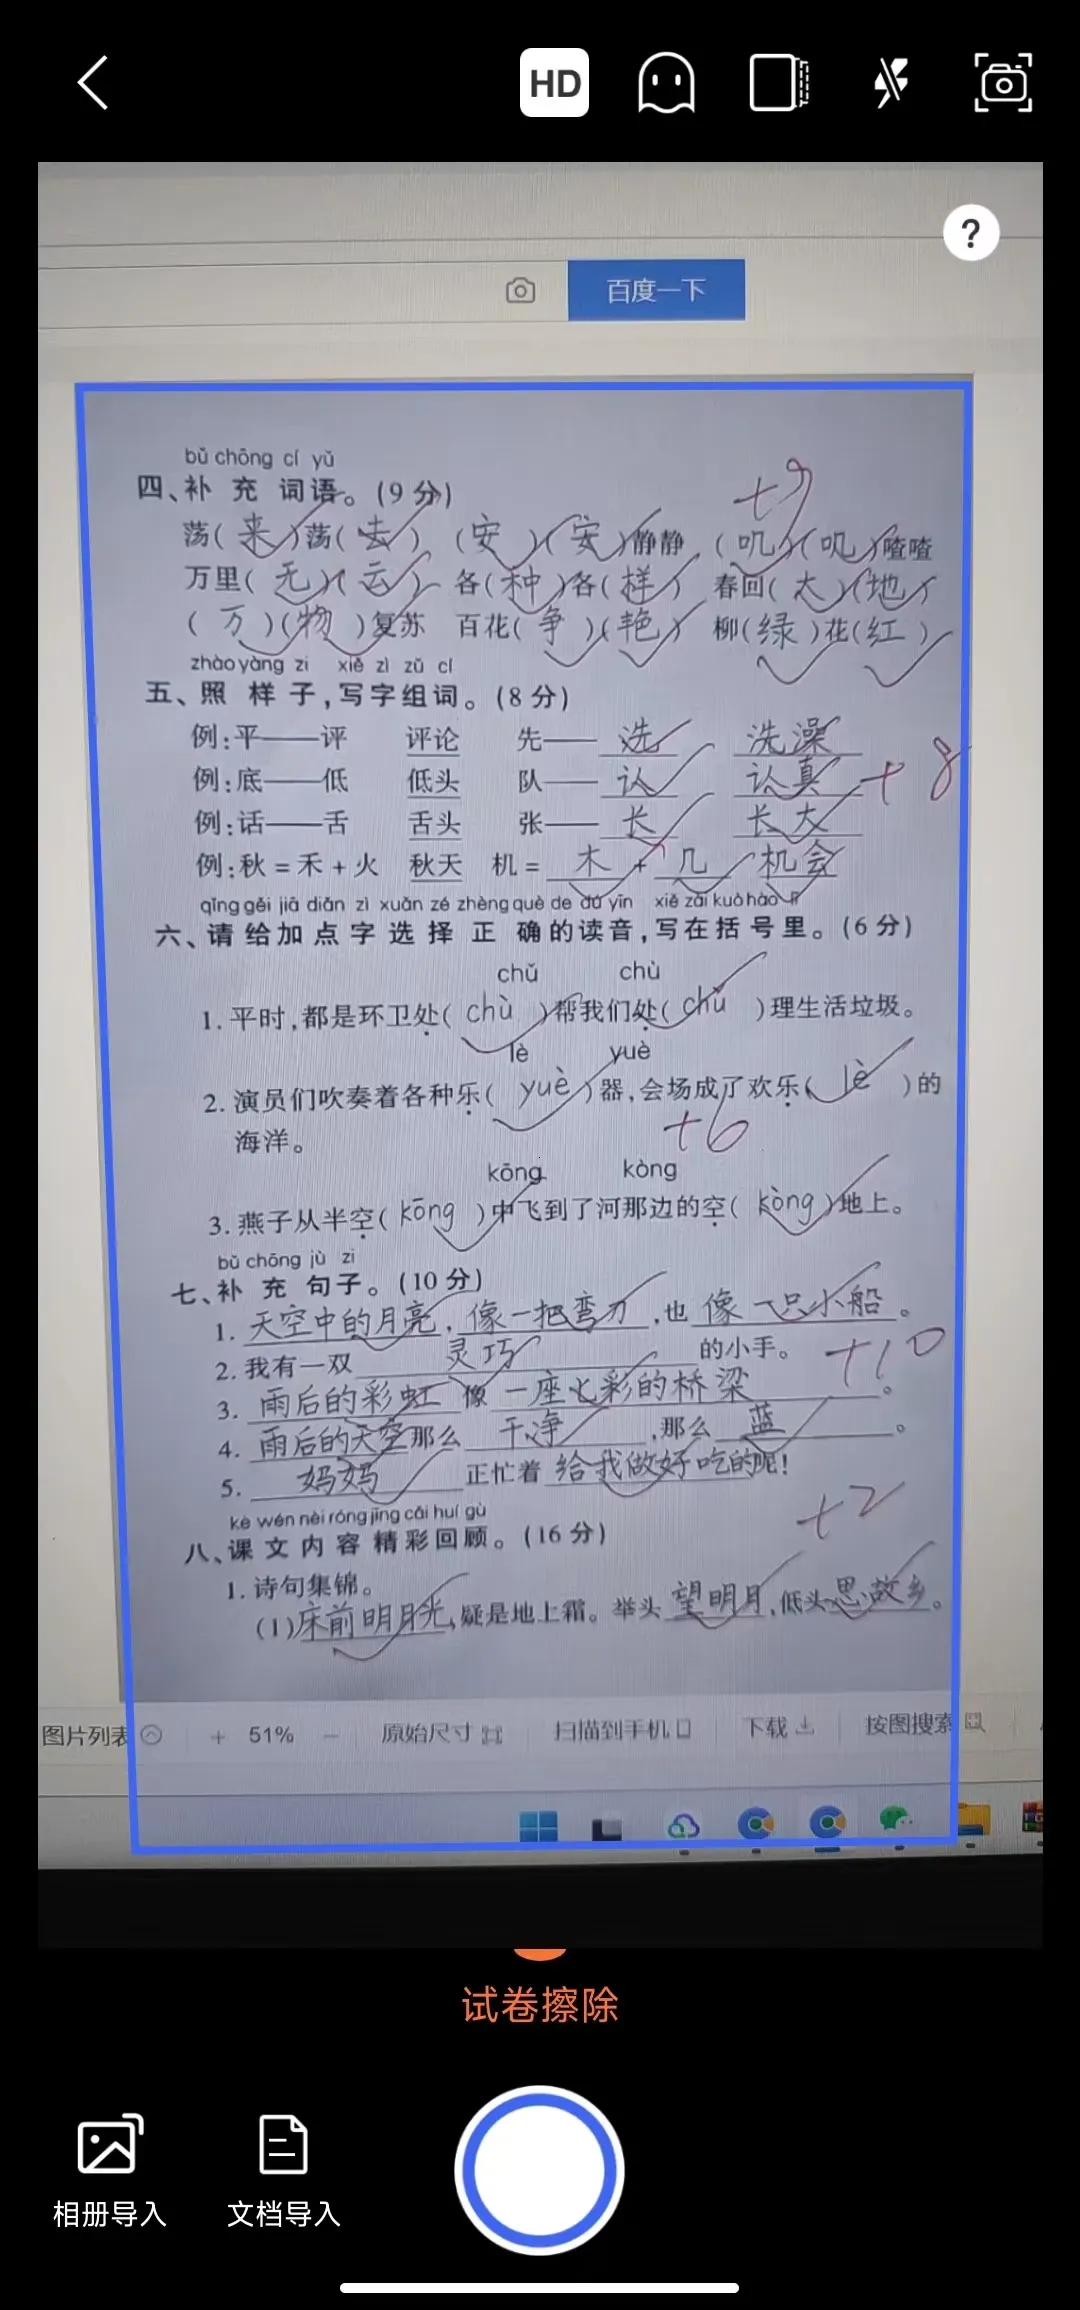 HD
?
百度一下
bǔ chōng cí yǔ
四、补充词语。(9分)
+9
荡(来)荡(去) (安)(安)静静 (叽)(叽)喳喳
万里(无)(云) 各(种)各(样) 春回(大)(地)
(万)(物)复苏 百花(争)(艳) 柳(绿)花(红)
zhào yàng zi xiě zì zǔ cí
五、照样子,写字组词。(8分)
例:平——评 评论 先——选 洗澡
例:底——低 低头 队——认 认真
+8
例:话——舌 舌头 张——长 长大
例:秋=禾+火 秋天 机=木+几 机会
qǐng gěi jiā diǎn zì xuǎn zé zhèng què de dú yīn xiě zài kuò hào lǐ
六、请给加点字选择正确的读音,写在括号里。(6分)
chǔ chù
1.平时,都是环卫处(chù)帮我们处(chǔ)理生活垃圾。
lè yuè
2.演员们吹奏着各种乐(yuè)器,会场成了欢乐(lè)的
海洋。
+6
kōng kòng
3.燕子从半空(kōng)中飞到了河那边的空(kòng)地上。
bǔ chōng jù zi
七、补充句子。(10分)
1.天空中的月亮,像一把弯刀,也像一只小船。
2.我有一双灵巧的小手。
+10
3.雨后的彩虹像一座七彩的桥梁。
4.雨后的天空那么干净,那么蓝。
5.妈妈正忙着给我做好吃的呢!
kè wén nèi róng jīng cǎi huí gù
+2
八、课文内容精彩回顾。(16分)
1.诗句集锦。
(1)床前明月光,疑是地上霜。举头望明月,低头思故乡。
图片列表 + 51% — 原始尺寸 扫描到手机 下载 按图搜索
试卷擦除
相册导入 文档导入